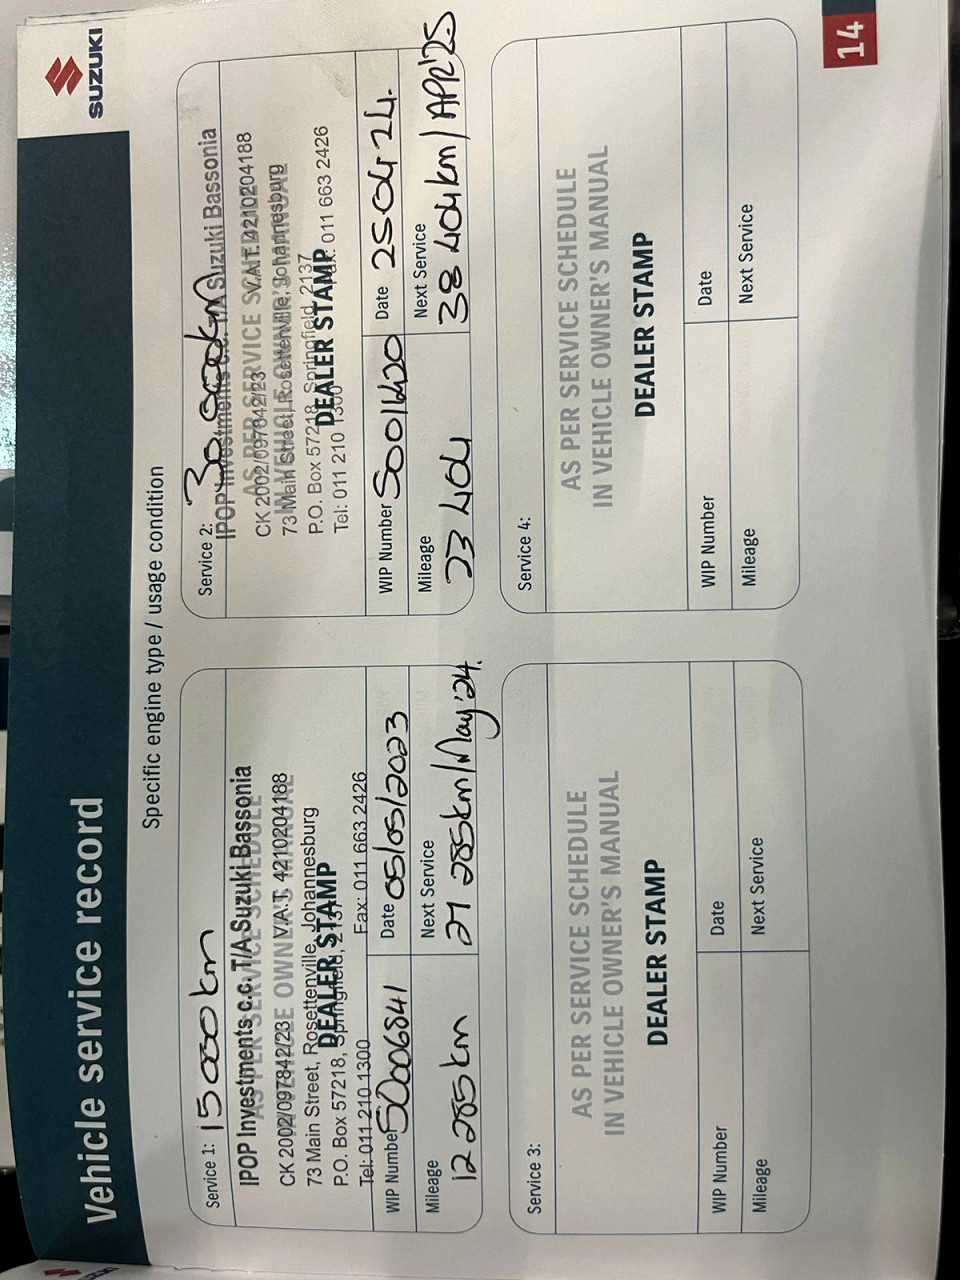 SUZUKI
Vehicle service record
Specific engine type / usage condition
Service 1: 15 000km
IPOP Investments c.c. T/A Suzuki Bassonia
AS PER SERVICE SCHEDULE
CK 2002/097842/23 V.A.T. 4210204188
IN VEHICLE OWNER'S MANUAL
73 Main Street, Rosettenville, Johannesburg
DEALER STAMP
P.O. Box 57218, Springfield, 2137
Tel: 011 210 1300 Fax: 011 663 2426
WIP Number S0006841 Date 05/05/2023
Mileage Next Service
12 285km 27 285km/May'24.
Service 2: 30 000km
IPOP Investments c.c. T/A Suzuki Bassonia
AS PER SERVICE SCHEDULE
CK 2002/097842/23 V.A.T. 4210204188
IN VEHICLE OWNER'S MANUAL
73 Main Street, Rosettenville, Johannesburg
P.O. Box 57218, Springfield, 2137
DEALER STAMP
Tel: 011 210 1300 Fax: 011 663 2426
WIP Number S0011420 Date 25.04.24.
Mileage Next Service
23 404 38 404km/APR'25
Service 3:
AS PER SERVICE SCHEDULE
IN VEHICLE OWNER'S MANUAL
DEALER STAMP
WIP Number Date
Mileage Next Service
Service 4:
AS PER SERVICE SCHEDULE
IN VEHICLE OWNER'S MANUAL
DEALER STAMP
WIP Number Date
Mileage Next Service
14